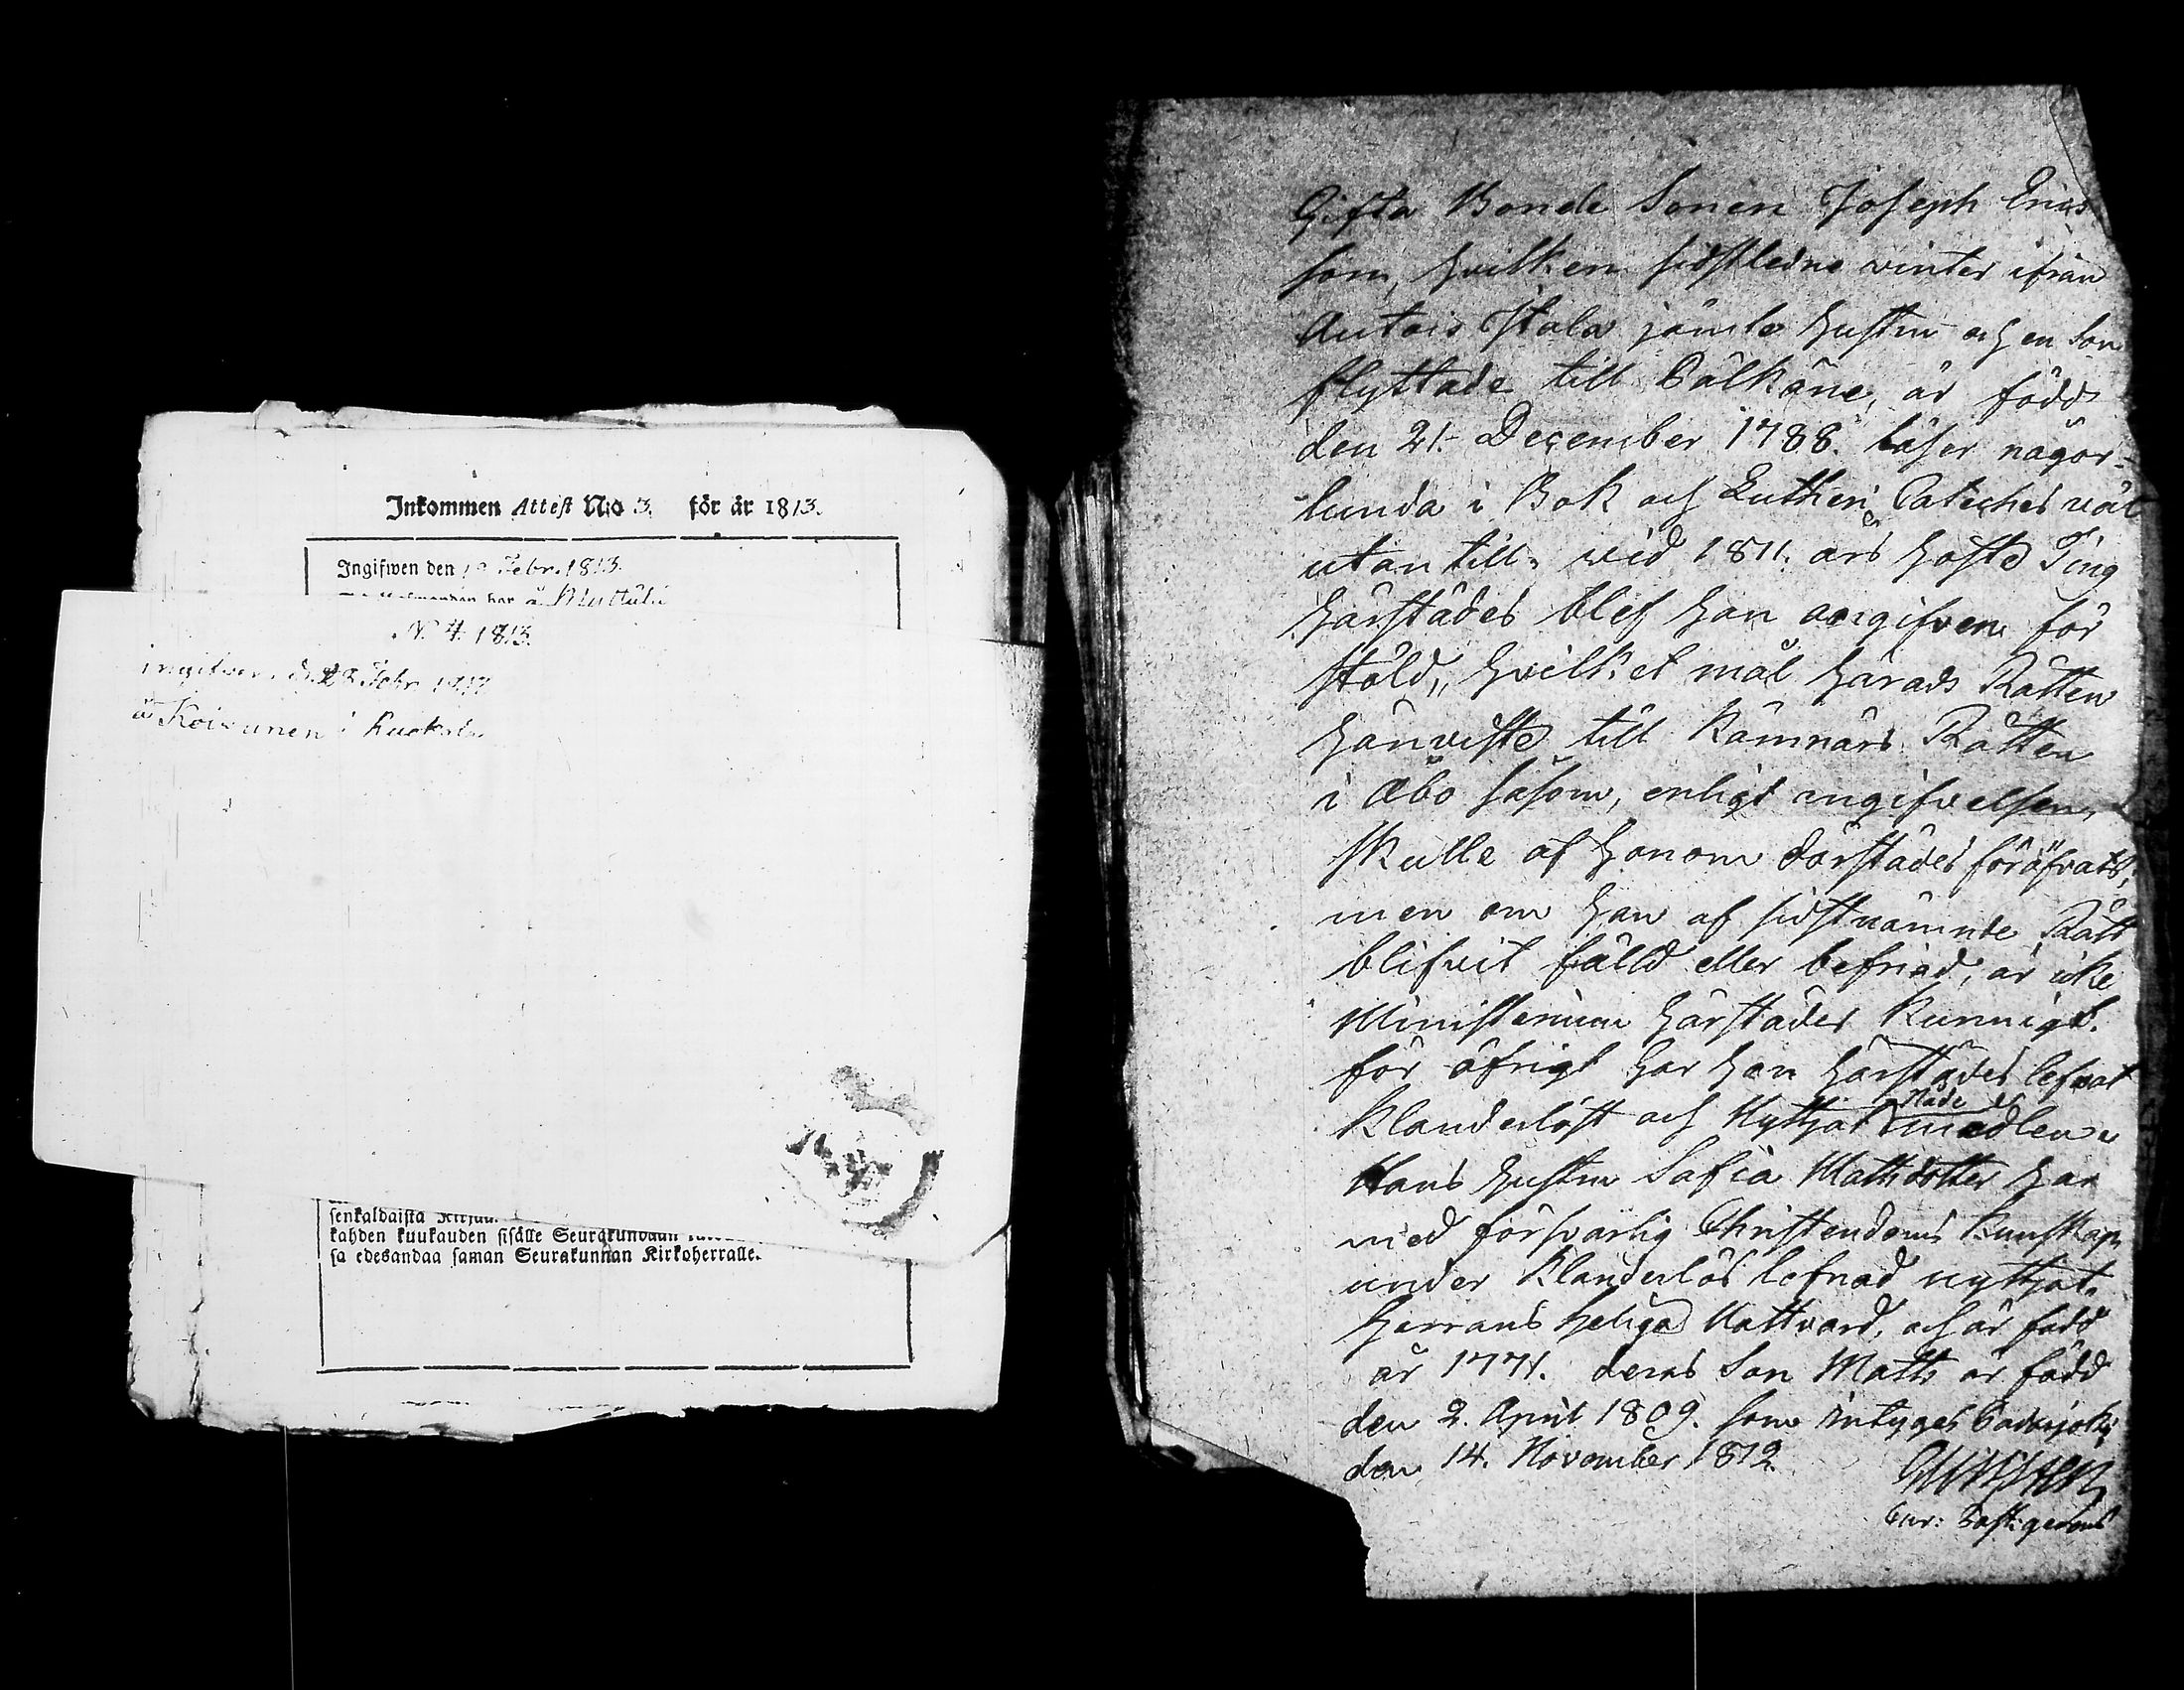 Inkommen Attest N:o 3. för år 1813.
Ingifwen den 12 Febr. 1813.
N:o 4. 1813.
ingifven d. 28 Febr. 1813
å Koivunen i
senkaldaista
kahden kuukauden sisälle Seurakundaan
sa edesandaa saman Seurakunnan Kirkoherralle.
Gifta Bonde Sonen Joseph Erics
son, hvilken sidstledne vinter ifrån
Autois Itala jämte hustru och en son
flyttade till Pälkäne, är född
den 21. December 1788. läser någor-
lunda i Bok och Lutheri Cateches väl
utantill. vid 1811. års höste Ting
härstädes blef han angifven för
stöld, hvilket mål Härads Rätten
hänviste till Kämnärs Rätten
i Åbo såsom, enligt angifvelsen,
skulle af honom därstädes föröfvats;
men om han af sidstnämnde Rätt
blifvit fälld eller befriad, är icke
Ministerium härstädes kunnigt.
för öfrigt har han härstädes lefvat
klanderlöst och Nyttjat Nåde medlen.
Hans hustru Safia Mattsdotter har
med försvarlig Christendoms kunskap
under klanderlös lefnad nyttjat
Herrans heliga Nattvard, och är född
år 1771. deras Son Matts är född
den 2. April 1809. som intygas Padasjoki
den 14. November 1812.